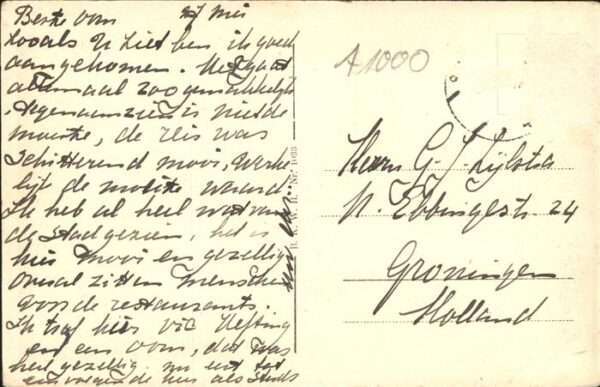 Beste oom
Zooals U ziet ben ik goed
aangekomen. Het gaat
allemaal zoo gemakkelijk
tegenaanzien is niet de
moeite, de reis was
Schitterend mooi, werke
lijk de moeite waard
Ik heb al heel wat van
de Stad gezien, het is
hier mooi en gezellig
overal zitten menschen
voor de restaurants.
Ik trof hier vic Hefting
en een oom, dat was
heel gezellig. nu
een volgende keer als Steeds
A1000
Heern G. J. Zijlstra
N. Ebbingestr. 24
Groningen
Holland